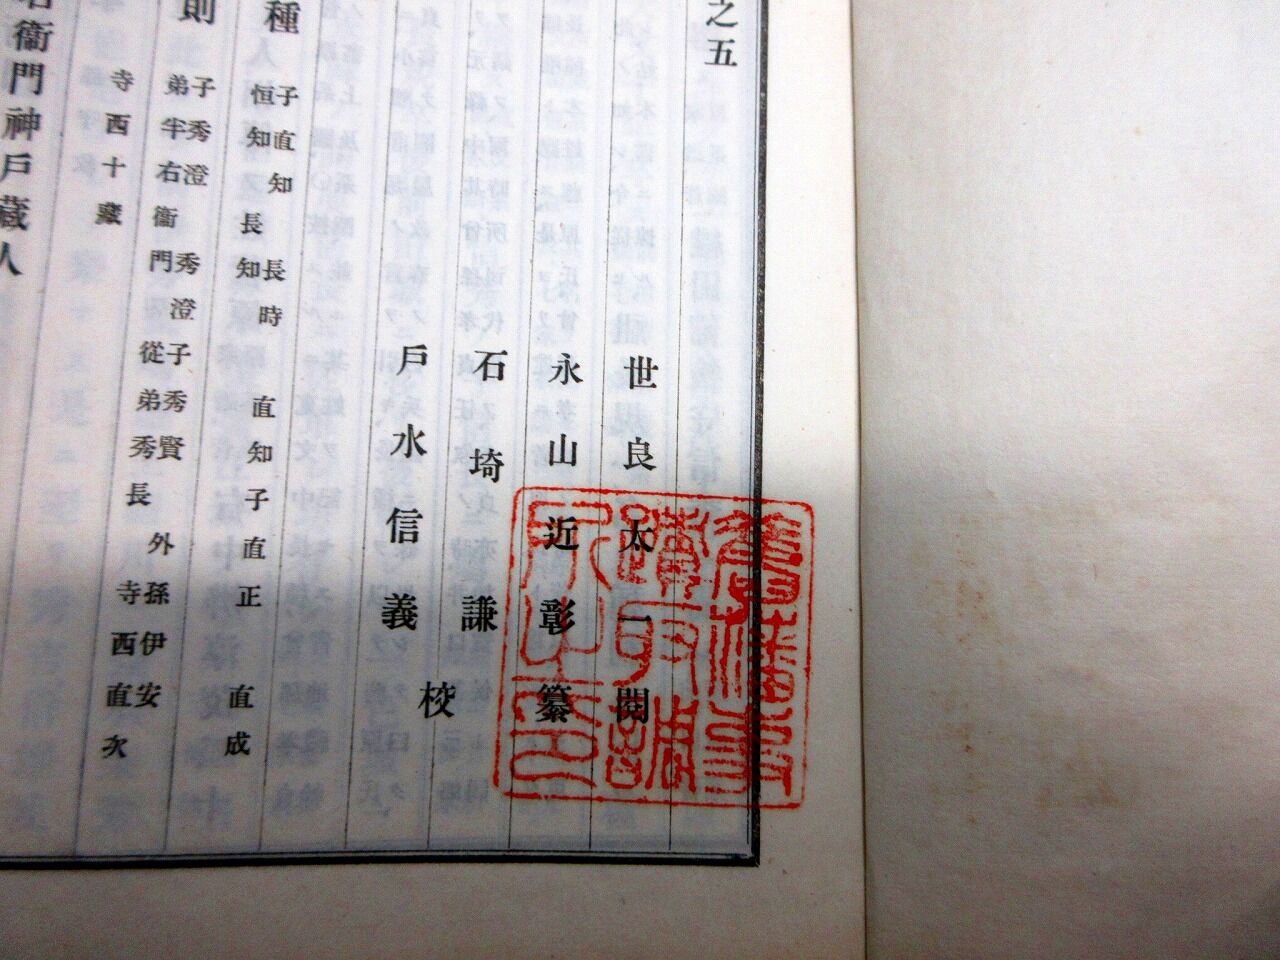 之五
世良太一閱
永山近彰纂
石埼謙
戶水信義
校
種
子直知
恒知
長
長時
知
直知子直正
直成
則
子秀澄
弟半右衞門
秀澄
子秀賢
從弟秀長
外孫伊安
寺西直次
寺西十藏
衞門神戶藏人
舊藩事
蹟取調
所之印